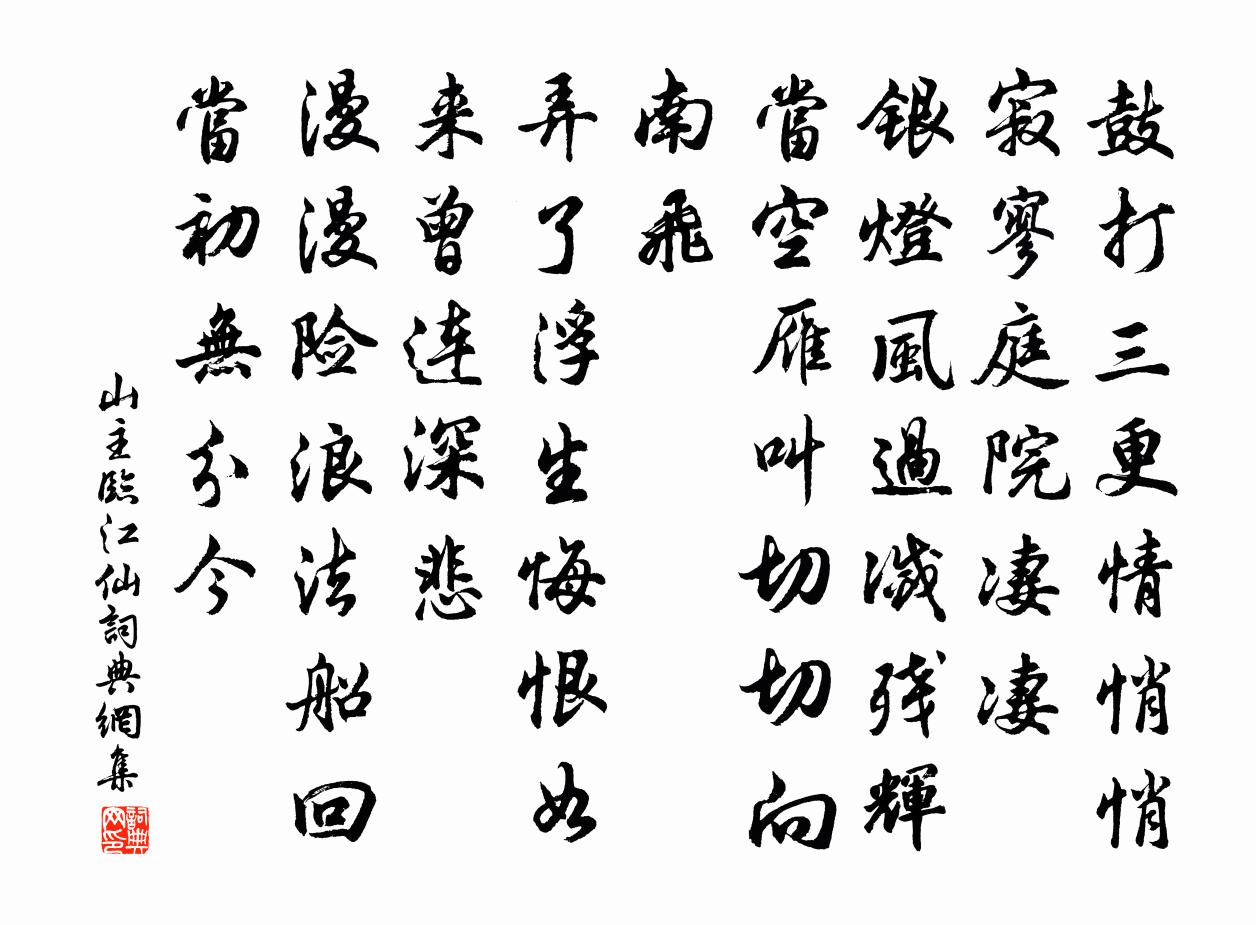 鼓打三更情悄悄
寂寥庭院凄凄
銀燈風過滅残輝
當空雁叫切切向
南飛
弄了浮生悔恨如
来曾连深悲
漫漫险浪法船回
當初無分今
山主臨江仙詞典網集
詞典网印